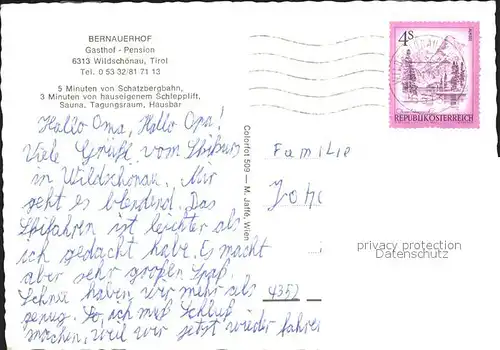 BERNAUERHOF
Gasthof - Pension
6313 Wildschönau, Tirol
Tel. 0 53 32/81 71 13
5 Minuten von Schatzbergbahn,
3 Minuten von hauseigenem Schlepplift,
Sauna, Tagungsraum, Hausbar
Hallo Oma, Hallo Opa!
Viele Grüße vom
in Wildschönau. Mir
geht es blendend. Das
Schifahren ist leichter als
ich gedacht habe. Es macht
aber sehr großen Spaß.
Schnee haben wir mehr als
genug. So, ich muß Schluß
machen, weil wir jetzt wieder fahren
Colorfot 509 — M. Jaffé, Wien
4S
REPUBLIK ÖSTERREICH
Familie
4352
privacy protection
Datenschutz